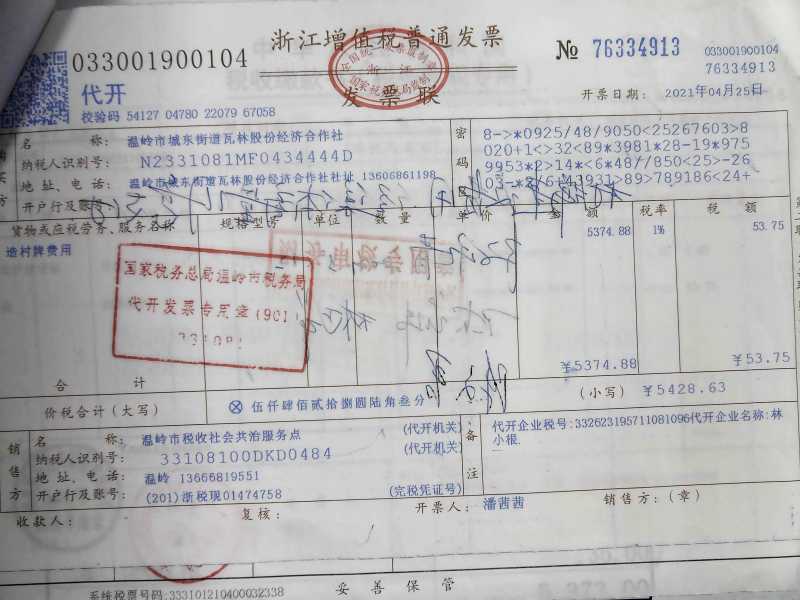 033001900104
浙江增值税普通发票
发票联
№ 76334913
033001900104
76334913
代开
校验码 54127 04780 22079 67058
开票日期: 2021年04月25日
名 称: 温岭市城东街道瓦林股份经济合作社
纳税人识别号: N2331081MF0434444D
地 址、电 话: 温岭市城东街道瓦林股份经济合作社社址 13606861198
开户行及账号:
密码区
8->*0925/48/9050<25267603>8
020+1<>32<89*3981*28-19*975
9953*2>14*<6*48//850<25>-26
货物或应税劳务、服务名称 规格型号 单位 数量 单价 金额 税率 税额
造村牌费用 5374.88 1% 53.75
国家税务总局温岭市税务局
代开发票专用章(90)
合 计 ¥5374.88 ¥53.75
价税合计(大写) ⊗ 伍仟肆佰贰拾捌圆陆角叁分 (小写) ¥5428.63
销售方
名 称: 温岭市税收社会共治服务点 (代开机关)
纳税人识别号: 33108100DKD0484 (代开机关)
地 址、电 话: 温岭 13666819551
开户行及账号: (201)浙税现01474758 (完税凭证号)
备注
代开企业税号:332623195711081096代开企业名称:林
小根
收款人: 复核: 开票人: 潘茜茜 销售方:(章)
系统税票号码:333101210400032338 妥善保管